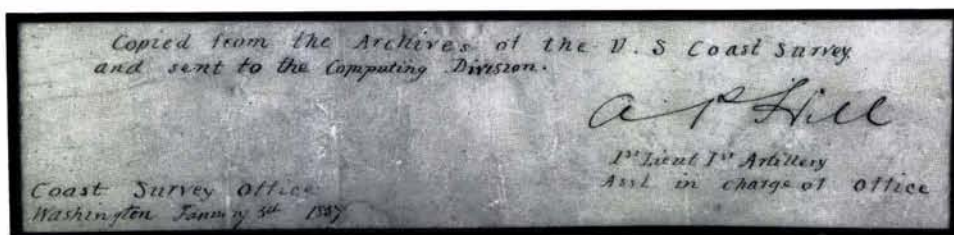 Copied from the Archives of the U. S Coast Survey
and sent to the Computing Division.
A P Hill
1st Lieut 1st Artillery
Asst. in charge of office
Coast Survey Office
Washington January 3d 1857